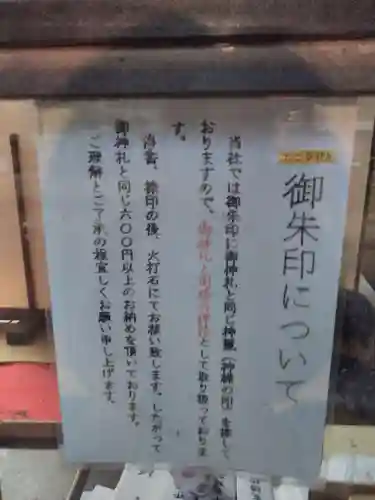 御朱印について
当社では御朱印に御神札と同じ神璽(神様の印)を捺して
おりますので、御神札と同様の
として取り扱っておりま
す。
浄書、捺印の後、火打石にてお祓い致します。したがって
御神札と同じ六〇〇円以上のお納めを頂いております。
ご理解とご了承の程宜しくお願い申し上げます。